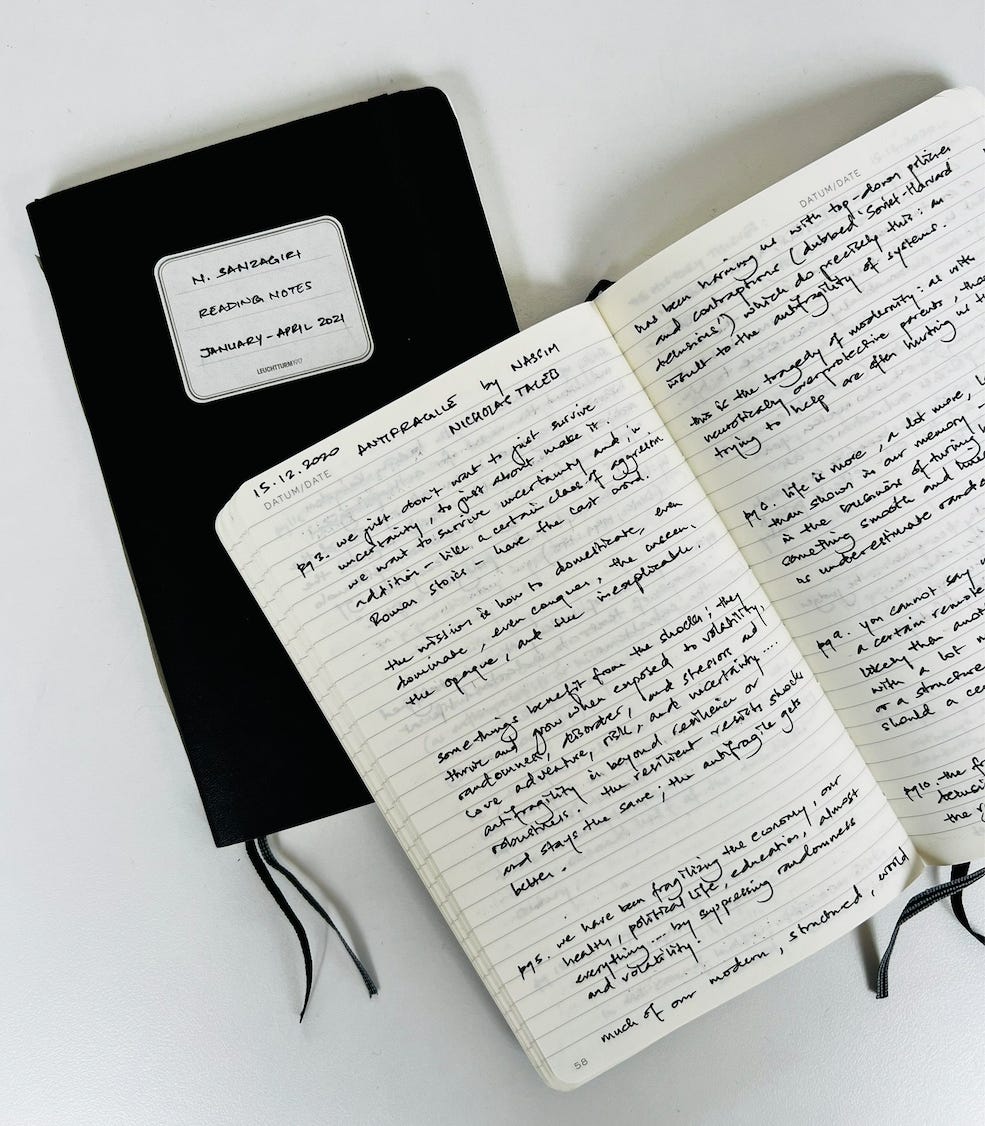 N. SANZAGIRI
READING NOTES
JANUARY - APRIL 2021
LEUCHTTURM1917
15.12.2020 ANTIFRAGILE by NASSIM
NICHOLAS TALEB
DATUM/DATE
pg 3. we just don't want to just survive
uncertainty, to just about make it.
we want to survive uncertainty and in
addition - like a certain class of aggressive
Roman stoics - have the last word.
the mission is how to domesticate, even
dominate, even conquer, the unseen,
the opaque, and the inexplicable.
some things benefit from the shocks; they
thrive and grow when exposed to volatility,
randomness, disorder, and stressors and
love adventure, risk, and uncertainty ....
antifragility is beyond resilience or
robustness. the resilient resists shocks
and stays the same; the antifragile gets
better.
pg 5. we have been fragilizing the economy, our
health, political life, education, almost
everything .... by suppressing randomness
and volatility.
much of our modern, structured, world
58
DATUM/DATE
has been harming us with top-down policies
and contraptions (dubbed 'Soviet-Harvard
delusions') which do precisely this: an
insult to the antifragility of systems.
this is the tragedy of modernity: as with
neurotically overprotective parents, those
trying to help are often hurting us the
pg 6. life is more, a lot more,
than shown in our memory
in the business of turning
something smooth and
us underestimate
pg 9. you cannot say
a certain remote
likely than another
with a lot
or a structure
should a
pg 10. the
the